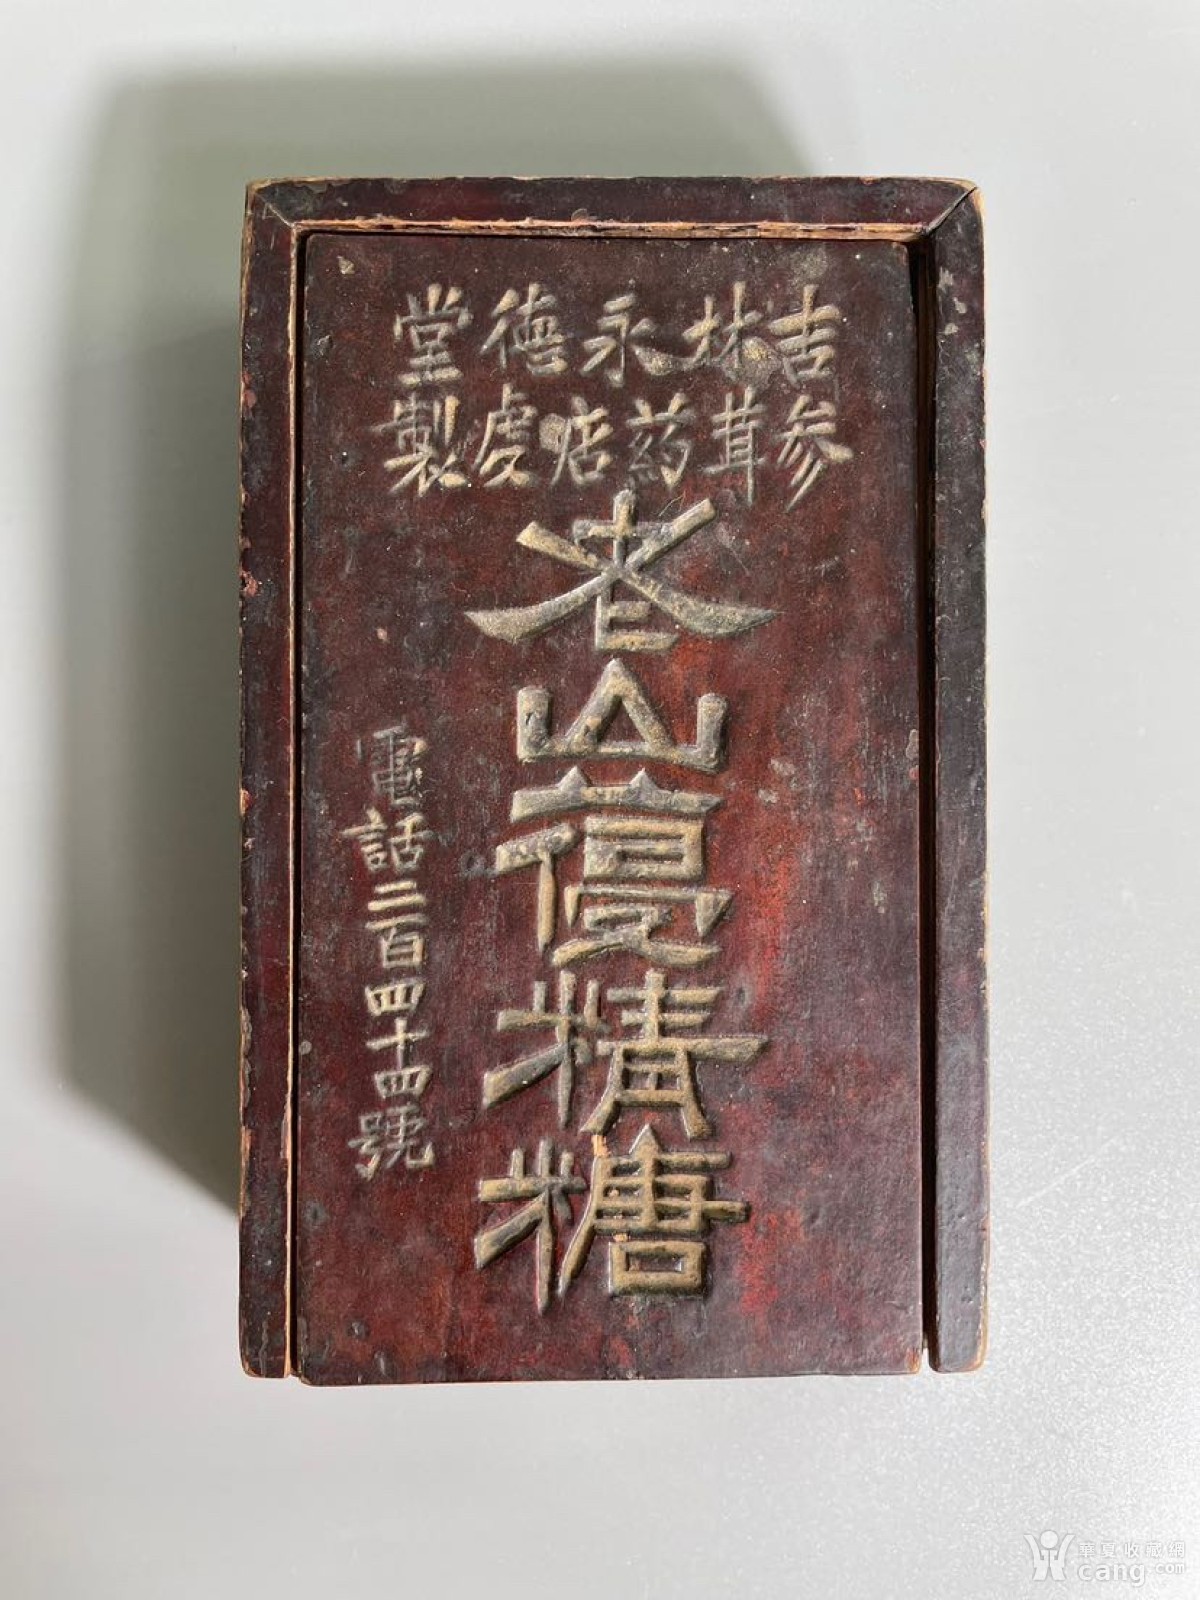 吉林永德堂
参茸葯店虔製
老山葠精糖
電話三百四十四號
華夏收藏網
cang.com